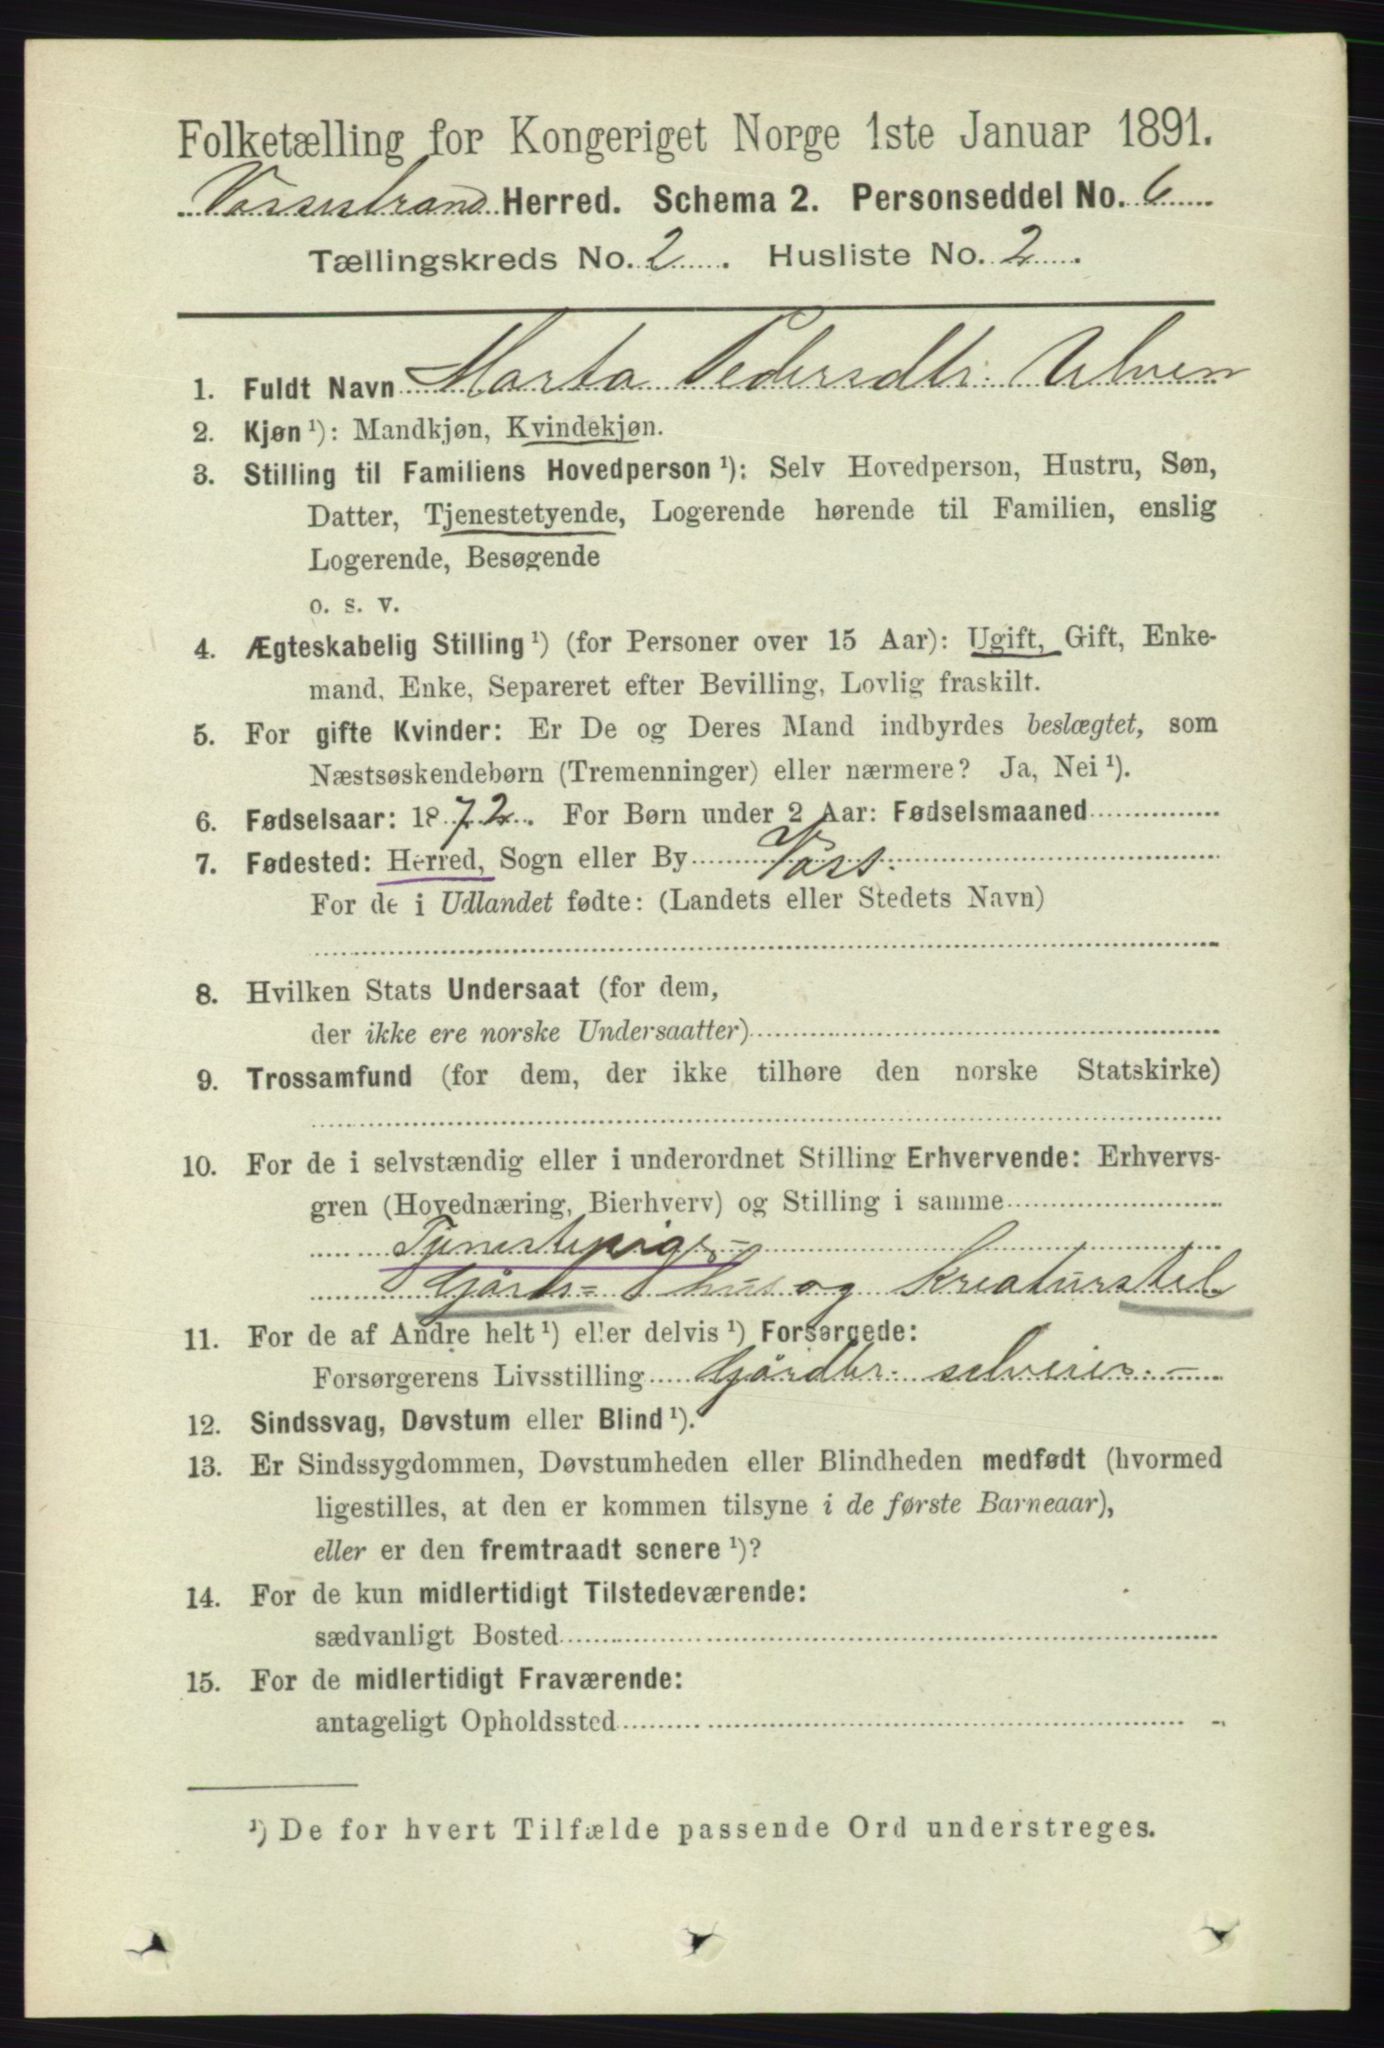 Folketælling for Kongeriget Norge 1ste Januar 1891.
Vossestrand Herred. Schema 2. Personseddel No. 6
Tællingskreds No. 2. Husliste No. 2.
1. Fuldt Navn Marta Pedersdtr. Ulven
2. Kjøn ¹): Mandkjøn, Kvindekjøn.
3. Stilling til Familiens Hovedperson ¹): Selv Hovedperson, Hustru, Søn,
Datter, Tjenestetyende, Logerende hørende til Familien, enslig
Logerende, Besøgende
o. s. v.
4. Ægteskabelig Stilling ¹) (for Personer over 15 Aar): Ugift, Gift, Enke-
mand, Enke, Separeret efter Bevilling, Lovlig fraskilt.
5. For gifte Kvinder: Er De og Deres Mand indbyrdes beslægtet, som
Næstsøskendebørn (Tremenninger) eller nærmere? Ja, Nei ¹).
6. Fødselsaar: 1872. For Børn under 2 Aar: Fødselsmaaned
7. Fødested: Herred, Sogn eller By Voss.
For de i Udlandet fødte: (Landets eller Stedets Navn)
8. Hvilken Stats Undersaat (for dem,
der ikke ere norske Undersaatter)
9. Trossamfund (for dem, der ikke tilhøre den norske Statskirke)
10. For de i selvstændig eller i underordnet Stilling Erhvervende: Erhvervs-
gren (Hovednæring, Bierhverv) og Stilling i samme
Tjenestepige =
Gjårds = hus og Kreaturstel
11. For de af Andre helt ¹) eller delvis ¹) Forsørgede:
Forsørgerens Livsstilling Gjårdbr. selveier. -
12. Sindssvag, Døvstum eller Blind ¹).
13. Er Sindssygdommen, Døvstumheden eller Blindheden medfødt (hvormed
ligestilles, at den er kommen tilsyne i de første Barneaar),
eller er den fremtraadt senere ¹)?
14. For de kun midlertidigt Tilstedeværende:
sædvanligt Bosted
15. For de midlertidigt Fraværende:
antageligt Opholdssted
¹) De for hvert Tilfælde passende Ord understreges.